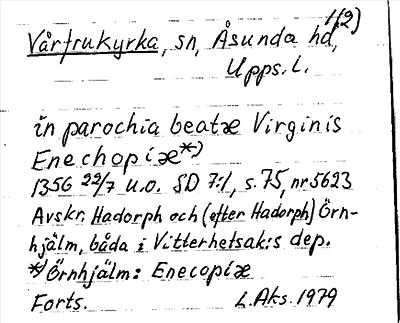 1(2)
Vårfrukyrka, sn, Åsunda hd,
Upps. l.
in parochia beatæ Virginis
Enechopiæ*)
1356 22/7 u.o. SD 7:1, s. 75, nr 5623
Avskr. Hadorph och (efter Hadorph) Örn-
hjälm, båda i Vitterhetsak:s dep.
*) Örnhjälm: Enecopiæ
Forts. L. Aks. 1979